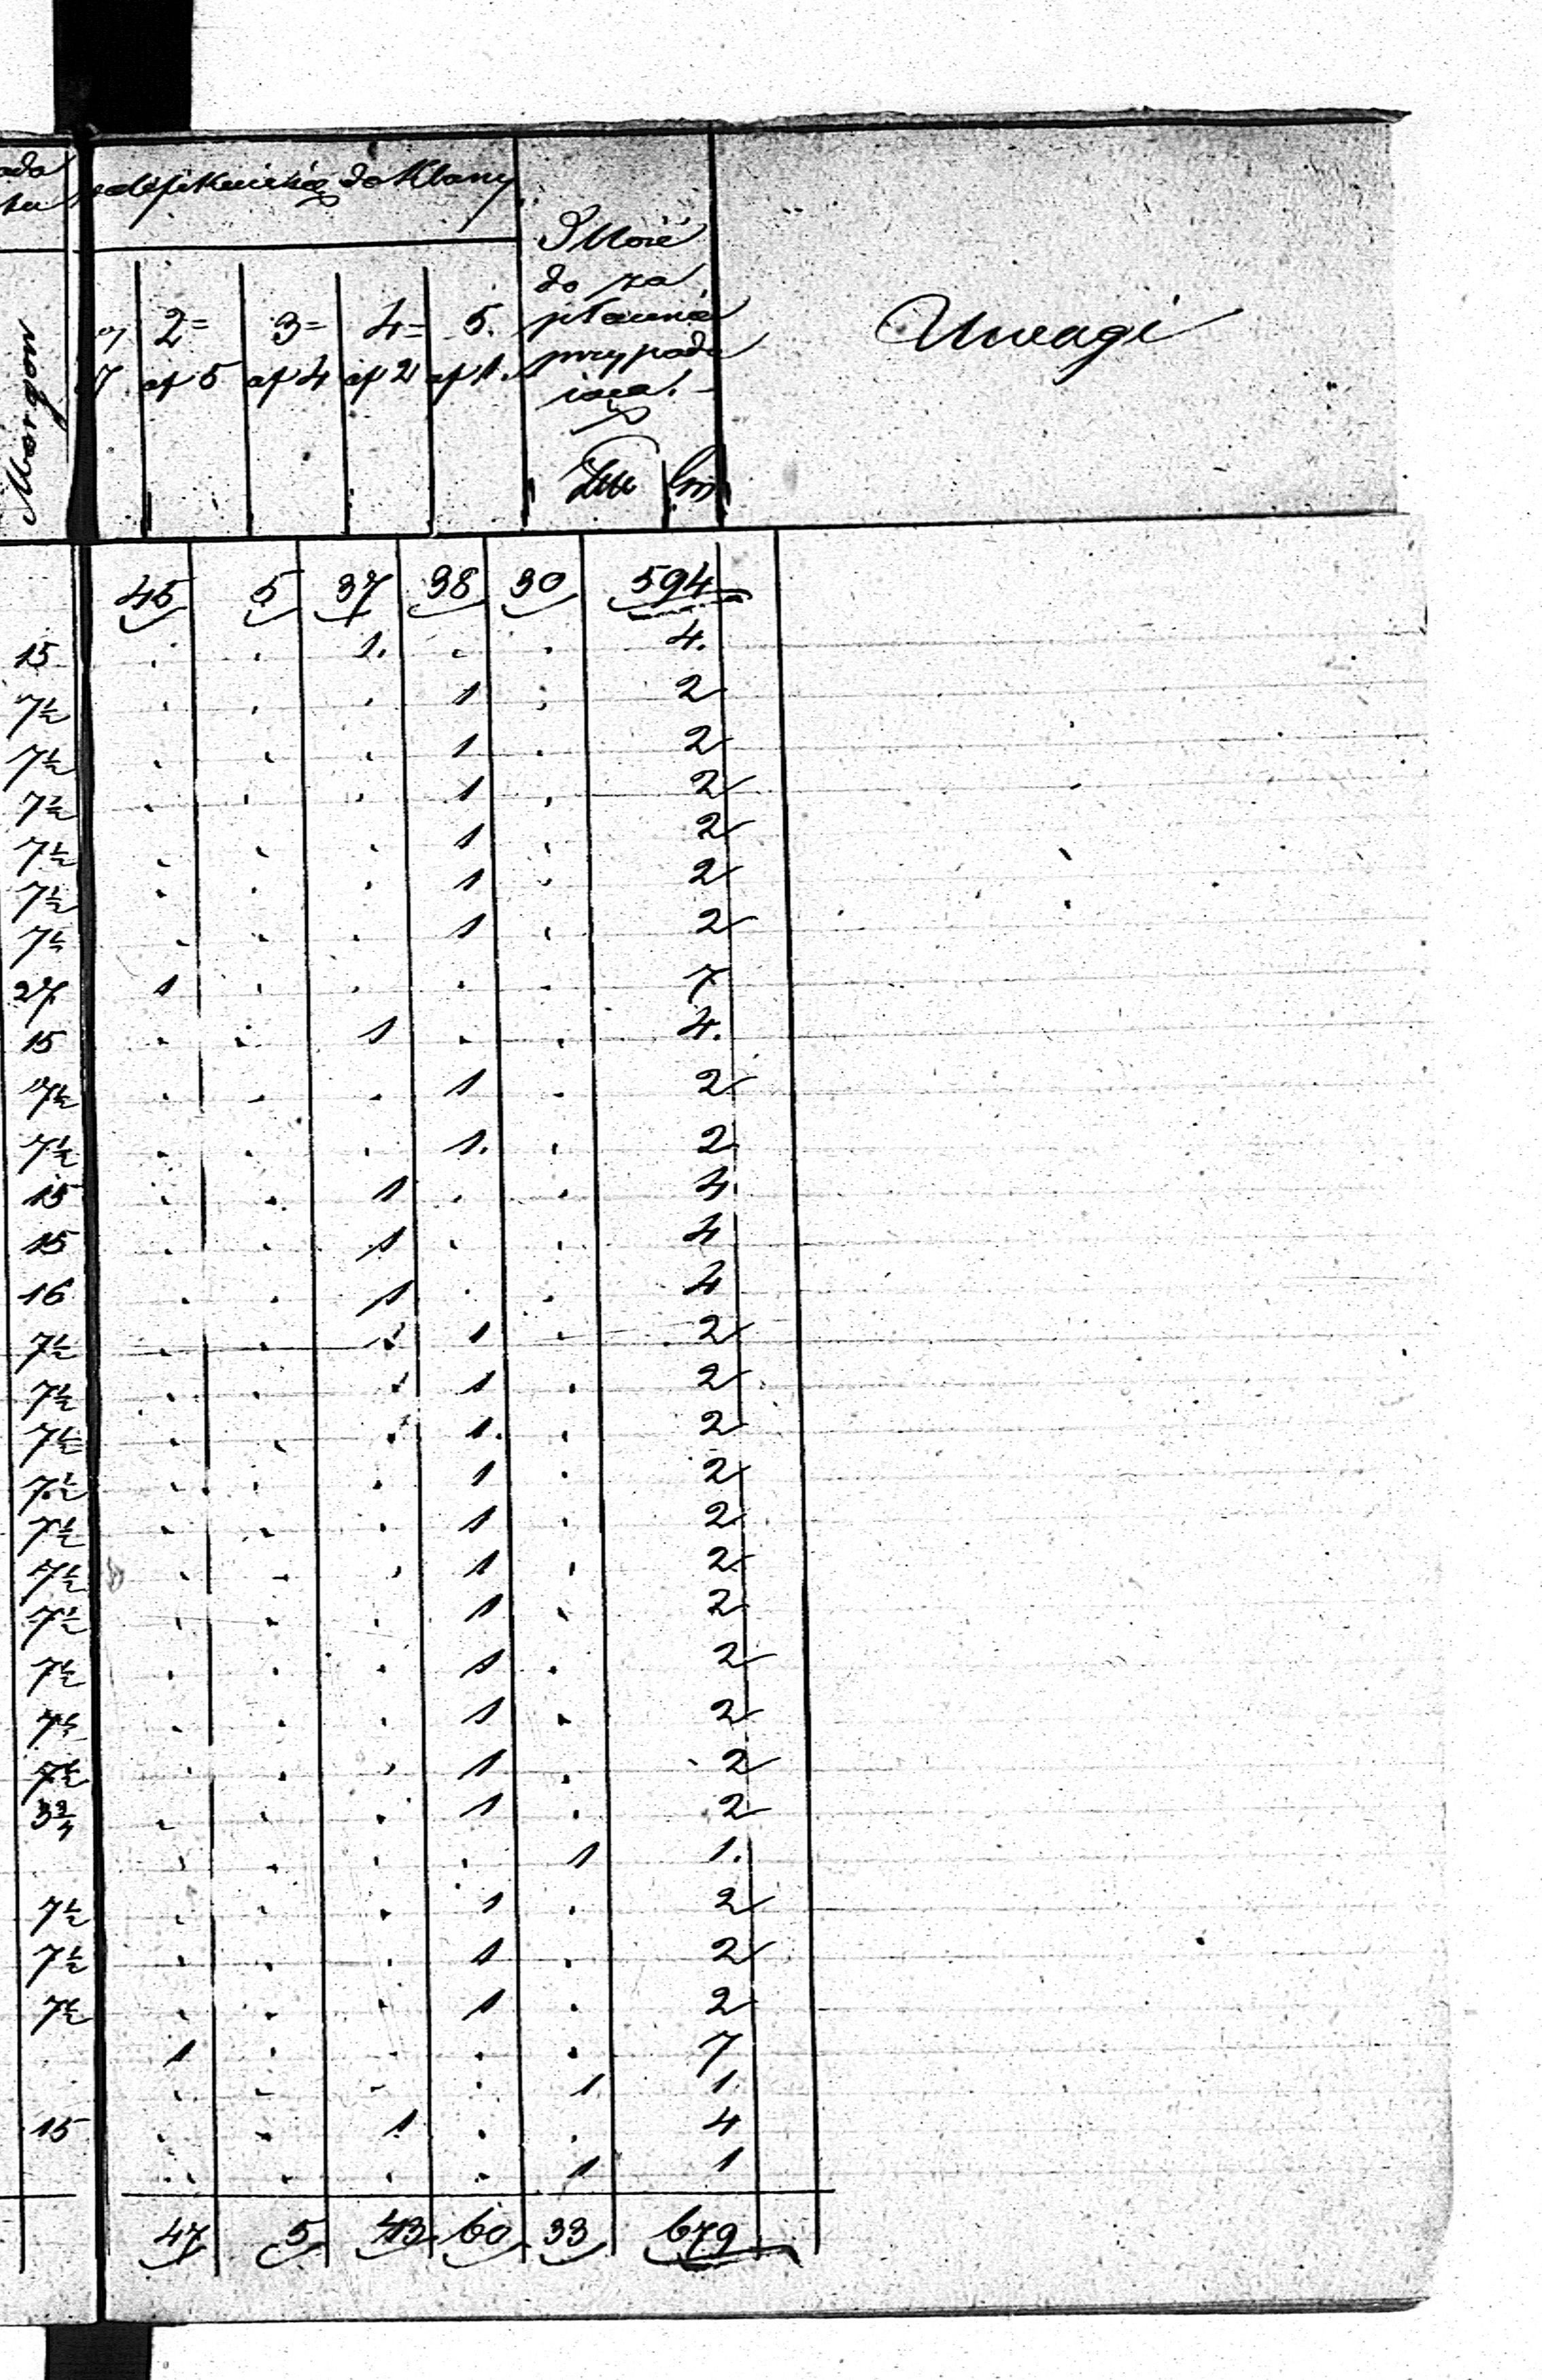 do Klassy
Morgow
2= 3= 4= 5.
af 5 af 4 af 2 af 1.
Ilość
do za
płacenia
przypada
iąca.
Złp gr
Uwagi
45 5 37 38 30 594
15 . . 1. . . 4.
7½ . . . 1 . 2
7½ . . . 1 . 2
7½ . . . 1 . 2
7½ . . . 1 . 2
7½ . . . 1 . 2
7½ . . . 1 . 2
27 1 . . . . 7
15 . . 1 . . 4.
7½ . . . 1 . 2
7½ . . . 1. . 2
15 . . 1 . . 4
15 . . 1 . . 4
16 . . 1 . . 4
7½ . . . 1 . 2
7½ . . . 1 . 2
7½ . . . 1. . 2
7½ . . . 1 . 2
7½ . . . 1 . 2
7½ . . . 1 . 2
7½ . . . 1 . 2
7½ . . . 1 . 2
7½ . . . 1 . 2
7½ . . . 1 . 2
3¾ . . . 1 . 2
. . . . 1 1.
7½ . . . 1 . 2
7½ . . . 1 . 2
7½ . . . 1 . 2
1 . . . . 7
. . . . 1 1
15 . . 1 . . 4
. . . . 1 1
47 5 43 60 33 679